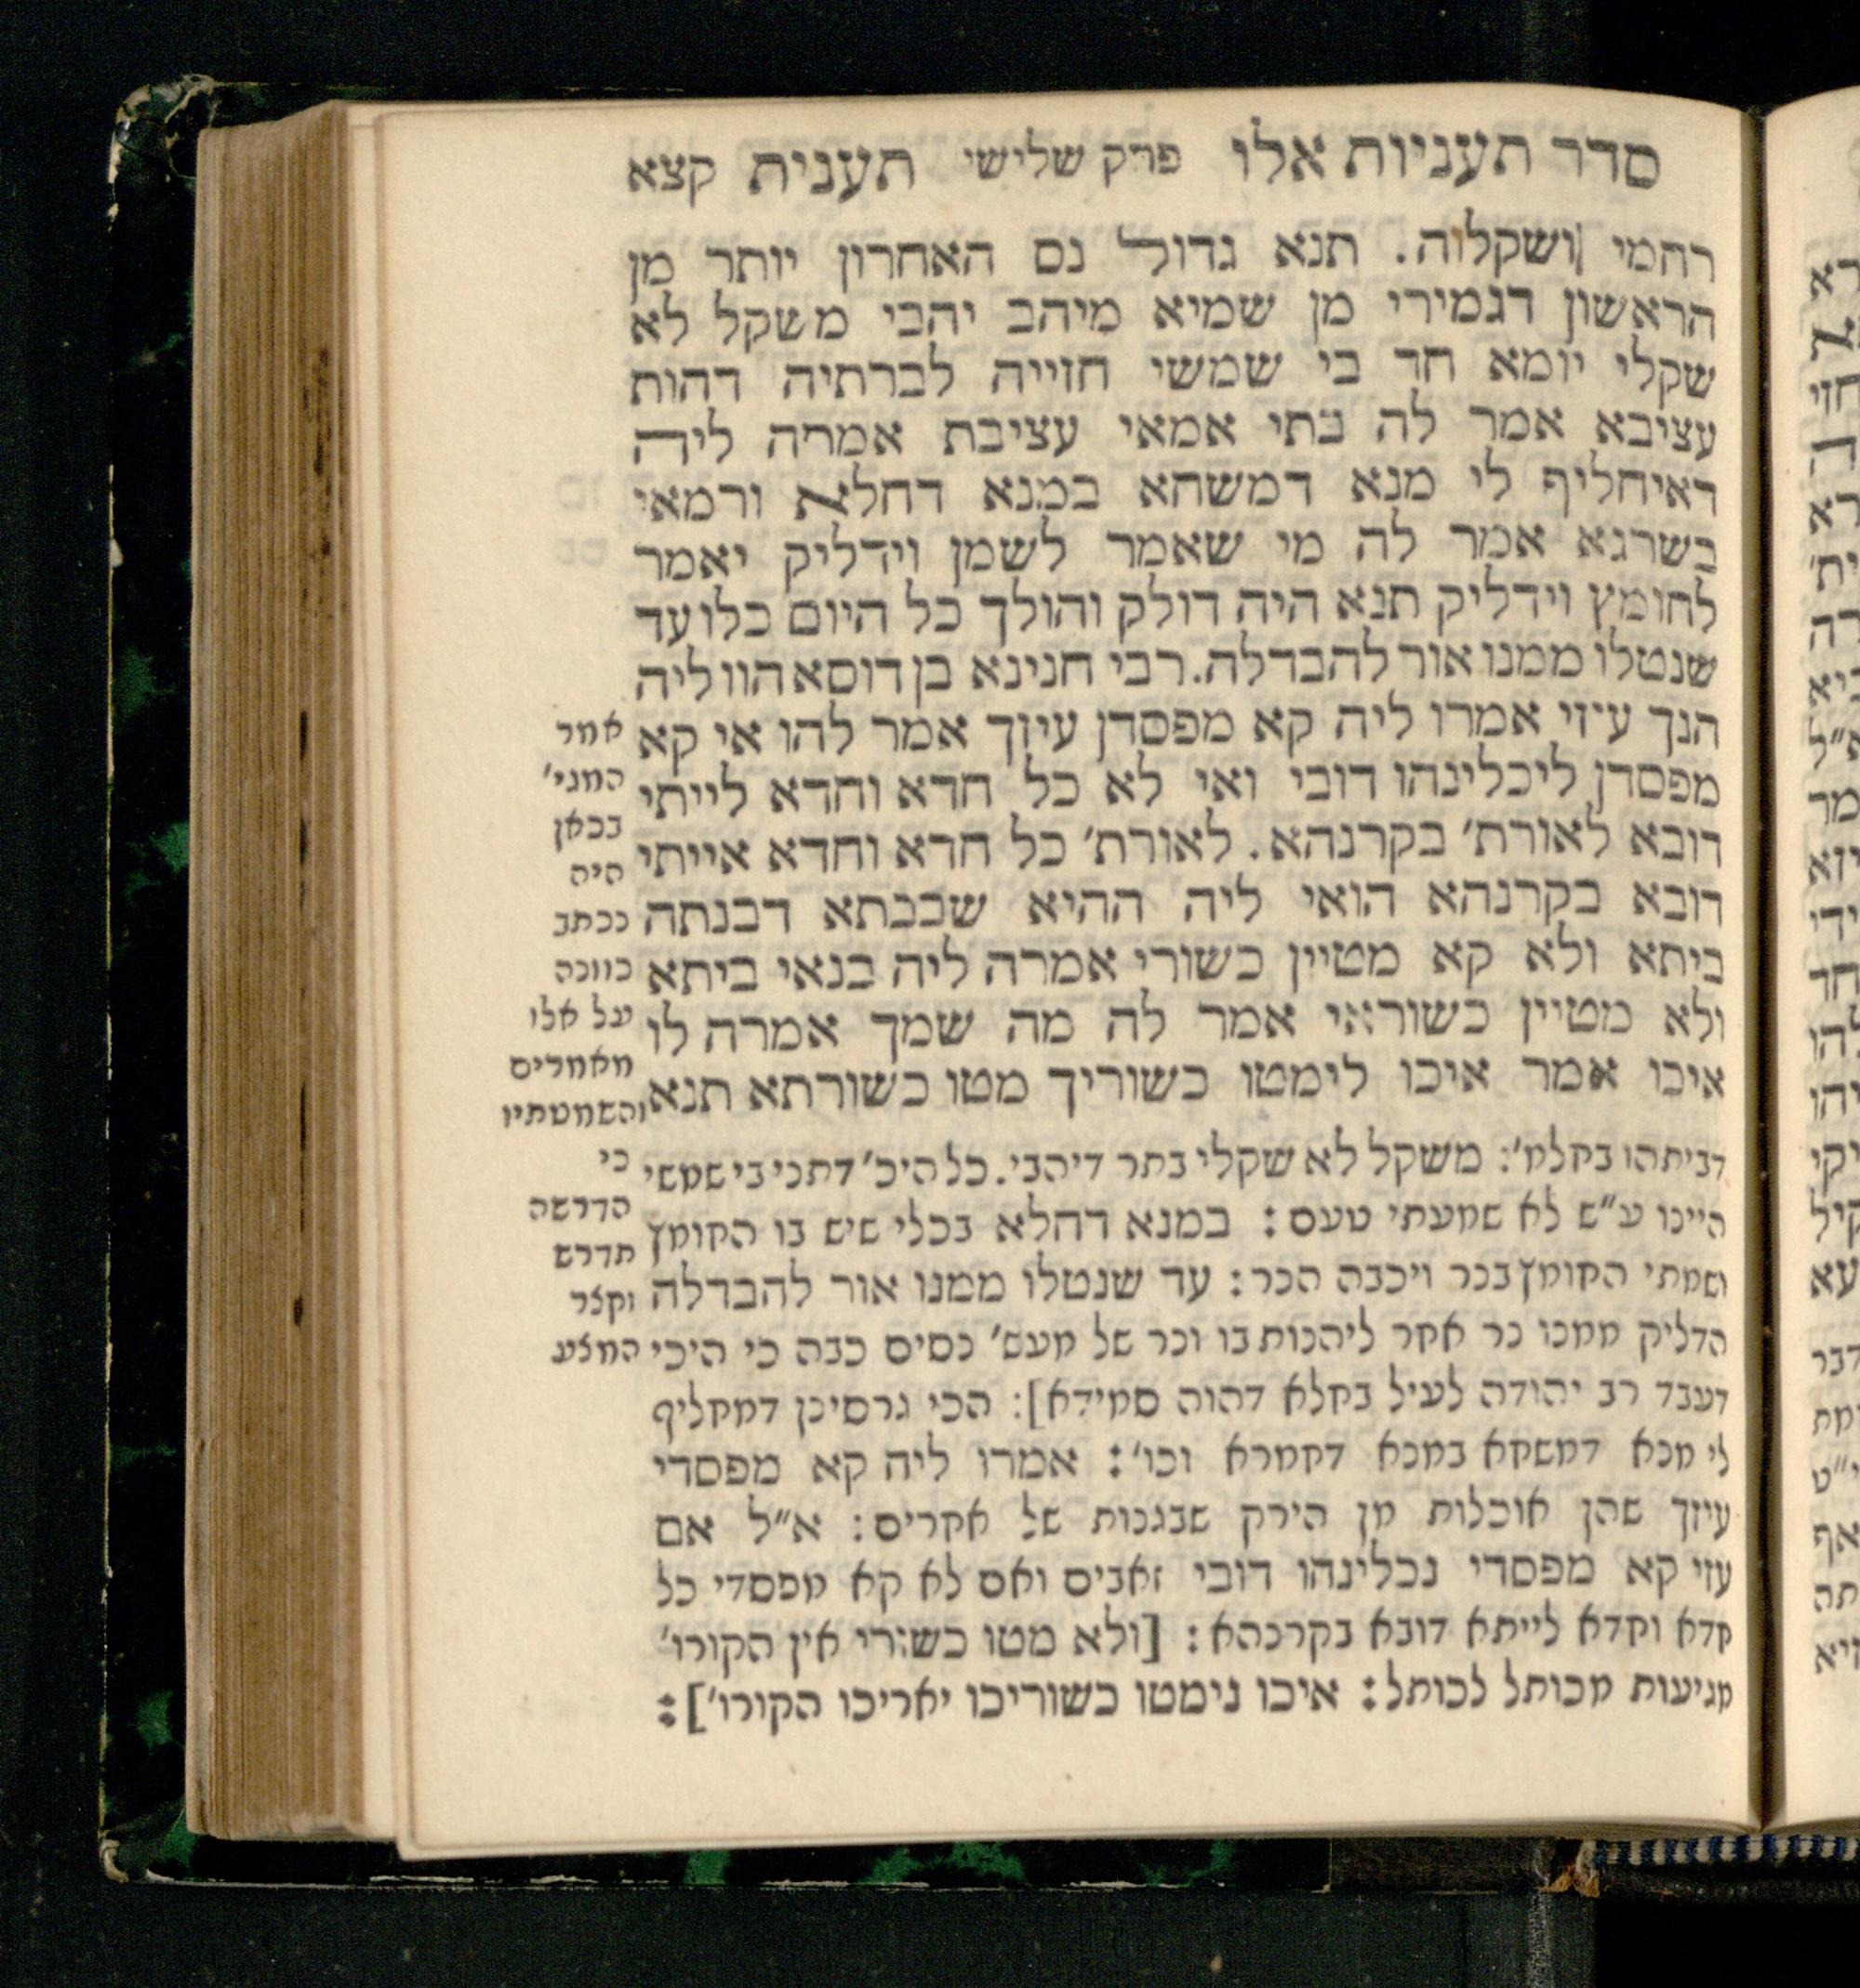 סדר תעניות אלו פרק שלישי תענית קצא
רחמי ושקלוה. תנא גדול נס האחרון יותר מן
הראשון דגמירי מן שמיא מיהב יהבי משקל לא
שקלי יומא חד בי שמשי חזייה לברתיה דהות
עציבא אמר לה בתי אמאי עציבת אמרה ליה
דאיחליף לי מנא דמשחא במנא דחלא ורמאי
בשרגא אמר לה מי שאמר לשמן וידליק יאמר
לחומץ וידליק תנא היה דולק והולך כל היום כלו עד
שנטלו ממנו אור להבדלה. רבי חנינא בן דוסא הוו ליה
הנך עיזי אמרו ליה קא מפסדן עיזך אמר להו אי קא
מפסדן ליכלינהו דובי ואי לא כל חדא וחדא לייתי
דובא לאורת׳ בקרנהא. לאורת׳ כל חדא וחדא אייתי
דובא בקרנהא הואי ליה ההיא שבבתא דבנתה
ביתא ולא קא מטיין כשורי אמרה ליה בנאי ביתא
ולא מטיין כשוראי אמר לה מה שמך אמרה לו
איכו אמר איכו לימטו כשוריך מטו כשורתא תנא
דביתהו בחלמ׳: משקל לא שקלי בתר דיהבי. כל היכ׳ דתני בי שמשי
היינו ע״ש לא שמעתי טעם: במנא דחלא בכלי שיש בו החומץ
ושמתי החומץ בנר ויכבה הנר: עד שנטלו ממנו אור להבדלה
הדליק ממנו נר אחר ליהנות בו ונר של מעש׳ נסים כבה כי היכי
דעבד רב יהודה לעיל בחלא דהוה סמידא]: הכי גרסינן דמחליף
לי מנא דמשחא במנא דחמרא וכו׳: אמרו ליה קא מפסדי
עיזך שהן אוכלות מן הירק שבגנות של אחרים: א״ל אם
עזי קא מפסדי נכלינהו דובי זאבים ואם לא קא מפסדי כל
חדא וחדא לייתא דובא בקרנהא: [ולא מטו כשורי אין הקורו׳
מגיעות מכותל לכותל: איכו נימטו כשוריכו יאריכו הקורו׳]:
אמר
המגי׳
בכאן
היה
נכתב
כוונה
על אלו
מאמרים
והשמטתיו
כי
הדרשה
תדרש
וקצר
המצע